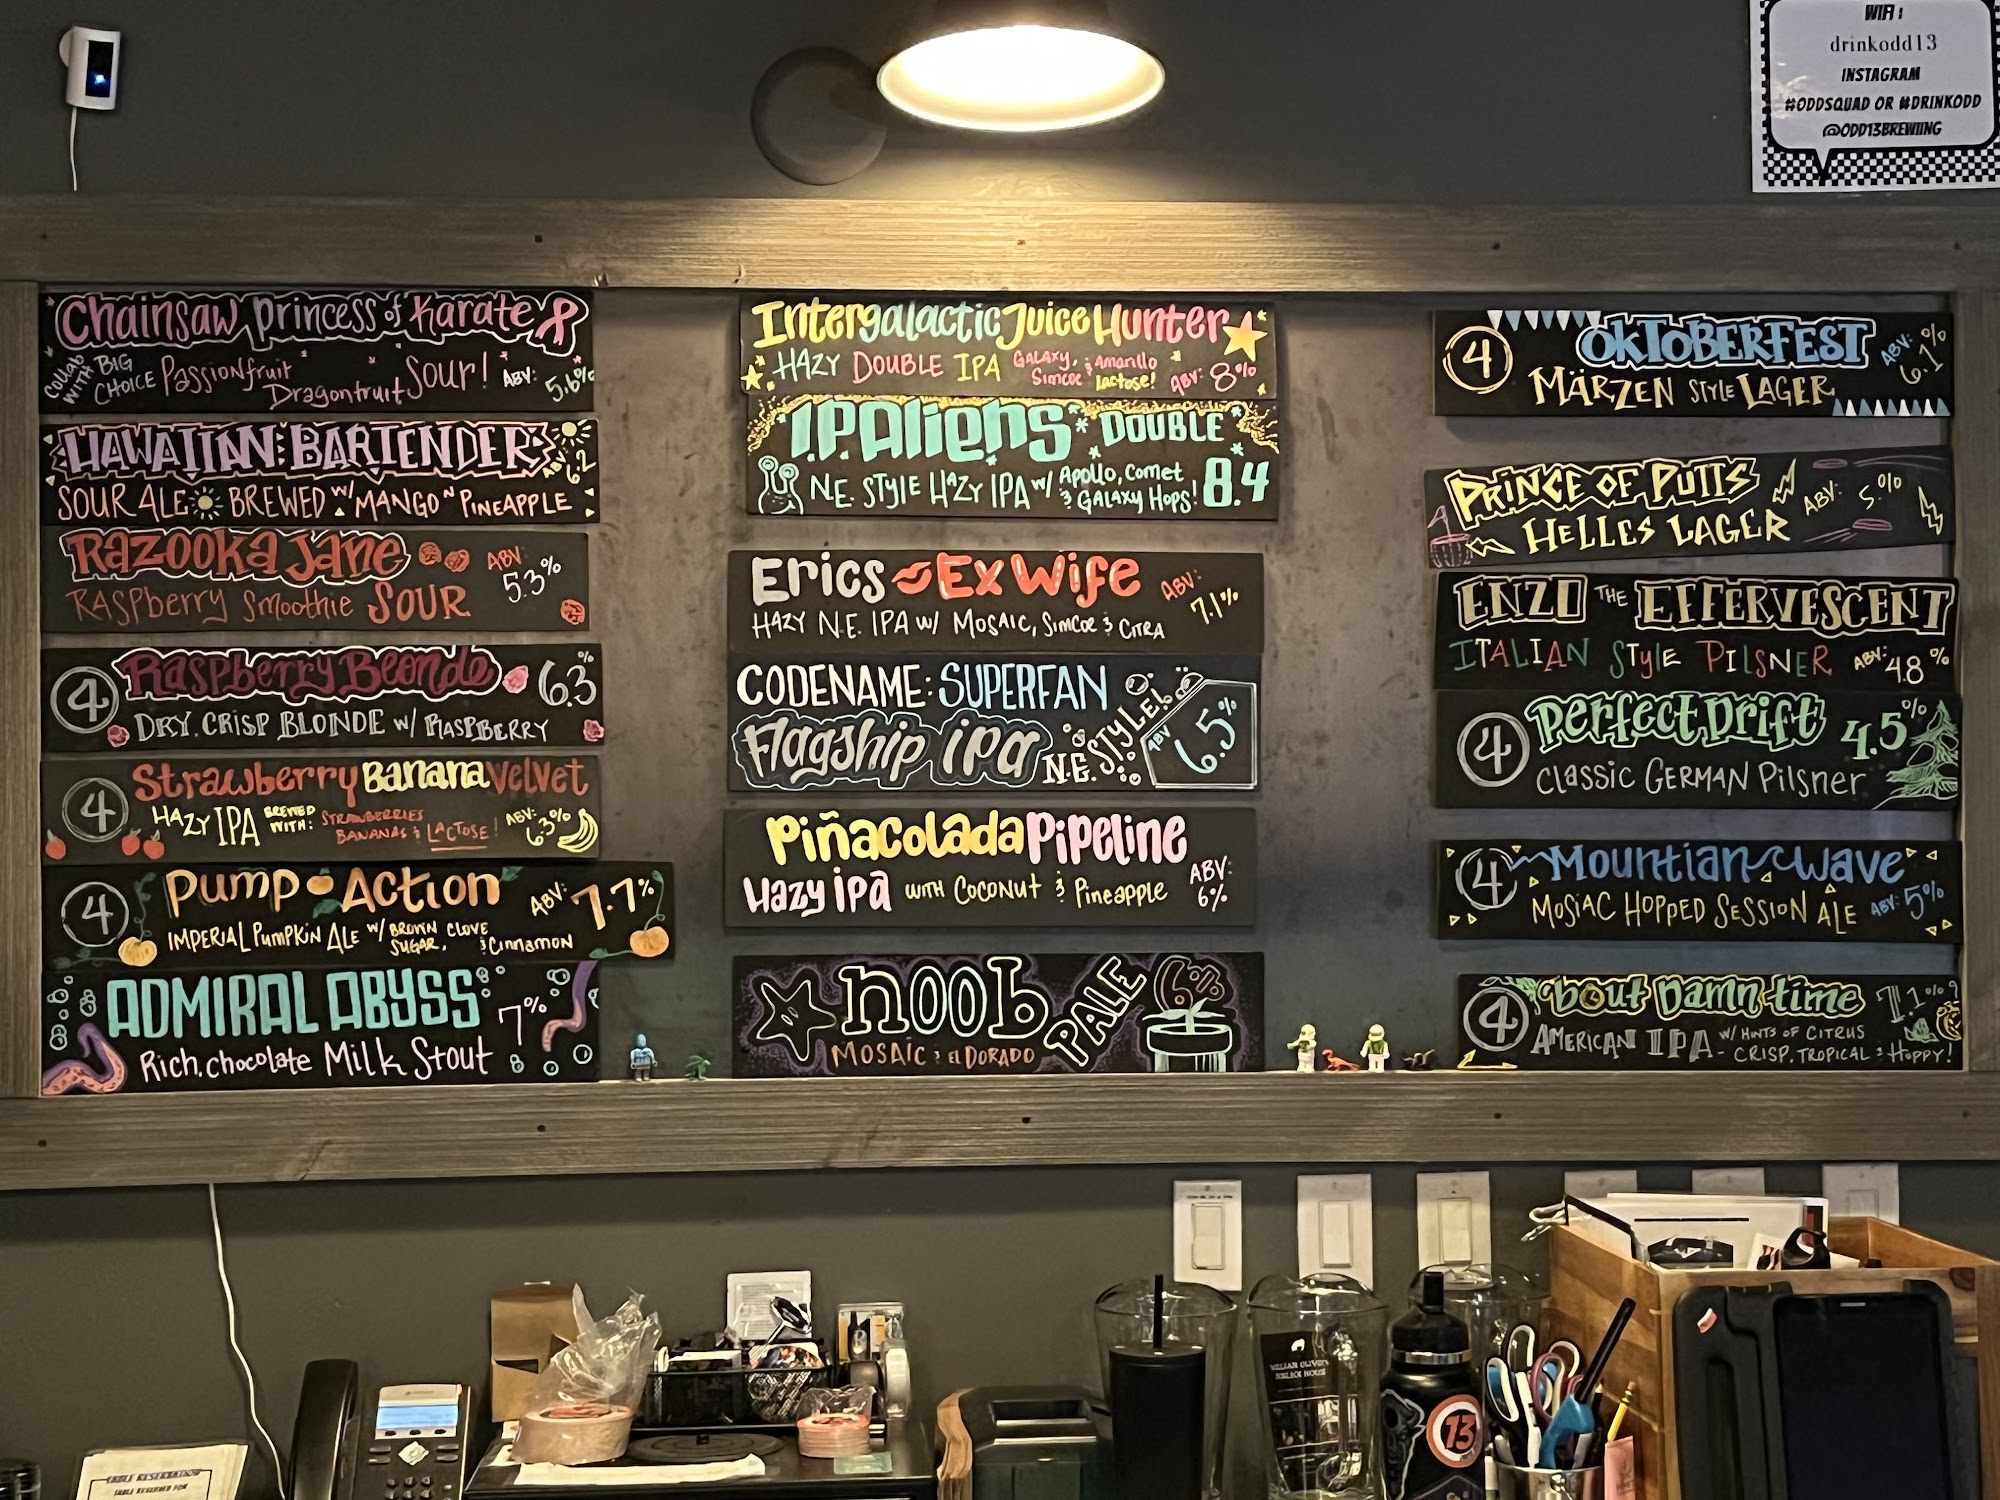 WIFI :
drinkodd13
INSTAGRAM
#ODDSQUAD OR #DRINKODD
@ODD13BREWIING
Chainsaw Princess of Karate
COLLAB WITH BIG CHOICE Passionfruit Dragonfruit Sour! ABV: 5.6%
HAWAIIAN BARTENDER ABV: 6.2
SOUR ALE BREWED W/ MANGO N PINEAPPLE
Razooka Jane ABV: 5.3%
RASPberry Smoothie SOUR
4 Raspberry Beonde 6.3%
DRY, CRISP BLONDE W/ RASPBERRY
4 Strawberry Banana Velvet
HAZY IPA BREWED WITH: STRAWBERRIES BANANAS & LACTOSE! ABV: 6.3%
4 Pump Action ABV: 7.7%
IMPERIAL PUMPKIN ALE W/ BROWN SUGAR, CLOVE & Cinnamon
ADMIRAL ABYSS 7%
Rich, chocolate Milk Stout
Intergalactic Juice Hunter
HAZY DOUBLE IPA GALAXY, Simcoe & Amarillo Lactose! ABV: 8%
I.P.Aliens DOUBLE
N.E. STYLE HAZY IPA W/ Apollo, Comet & GALAXY HOPS! 8.4
Erics Ex Wife ABV: 7.1%
HAZY N.E. IPA W/ MOSAIC, SIMCOE & CITRA
CODENAME: SUPERFAN
Flagship IPA N.E. STYLE! ABV 6.5%
Piñacolada Pipeline
Hazy ipa WITH COCONUT & Pineapple ABV: 6%
noob PALE 6%
MOSAIC & EL DORADO
4 OKTOBERFEST ABV: 6.1%
MÄRZEN STYLE LAGER
PRINCE OF PUTTS ABV: 5.%
HELLES LAGER
ENZO THE EFFERVESCENT
ITALIAN STYLE PILSNER ABV: 4.8%
4 Perfect Drift 4.5%
Classic GERMAN Pilsner
4 Mountian Wave
MOSIAC HOPPED SESSION ALE ABV: 5%
4 'bout Damn time 7.1%
AMERICAN IPA W/ HINTS OF CITRUS - CRISP, TROPICAL & HOPPY!
13
TABLE RESERVATION
TABLE RESERVED FOR